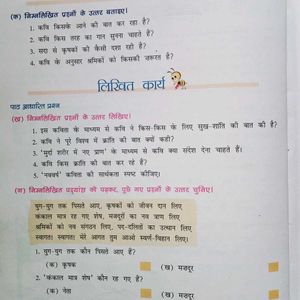 (क) निम्नलिखित प्रश्नों के उत्तर बताइए।
1. कवि किसके आने की बात कर रहा है?
2. कवि किस तरह का गान सुनना चाहते हैं?
3. सदा से कृषकों की कैसी दशा रही है?
4. कवि के अनुसार श्रमिकों को किसकी जरूरत है?
लिखित कार्य
पाठ आधारित प्रश्न
(ख) निम्नलिखित प्रश्नों के उत्तर लिखिए।
1. इस कविता के माध्यम से कवि ने किस-किस के लिए सुख-शांति की बात की है?
2. कवि ने पूरे विश्व में क्रांति की बात क्यों कही?
3. 'मुर्दा शरीर में नए प्राण' के माध्यम से कवि क्या संदेश देना चाहते हैं।
4. कवि किस क्रांति की बात कर रहे हैं?
5. 'नववर्ष' कविता की सार्थकता स्पष्ट कीजिए।
(ग) निम्नलिखित पद्यांश को पढ़कर, पूछे गए प्रश्नों के उत्तर चुनिए।
युग-युग तक पिसते आए, कृषकों को जीवन दान लिए
कंकाल मात्र रह गए शेष, मजदूरों का नव त्राण लिए
श्रमिकों का नव संगठन लिए, पद-दलितों का उत्थान लिए
स्वागत! स्वागत! मेरे आगत तुम आओ स्वर्ण-विहान लिए।
1. युग-युग तक कौन पिसते आए हैं?
(क) कृषक
(ख) मजदूर
2. 'कंकाल मात्र शेष' कौन रह गए हैं?
(क) नेता
(ख) मजदूर